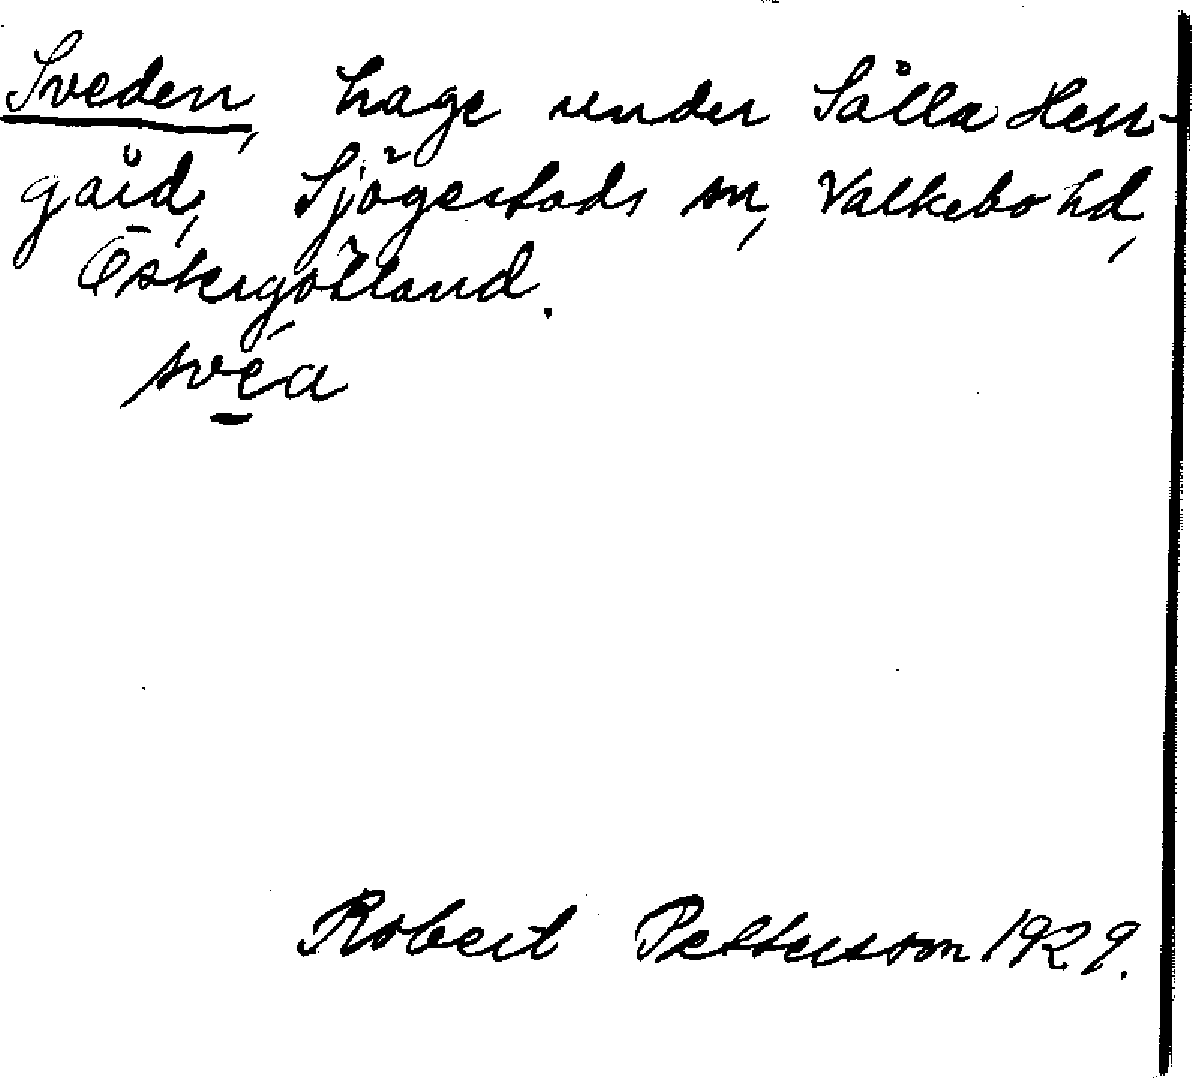 Sveden, hage under Sålla Herr-
gård, Sjögestads sn, Valkebo hd,
Östergötland.
svéa
Robert Pettersson 1929.